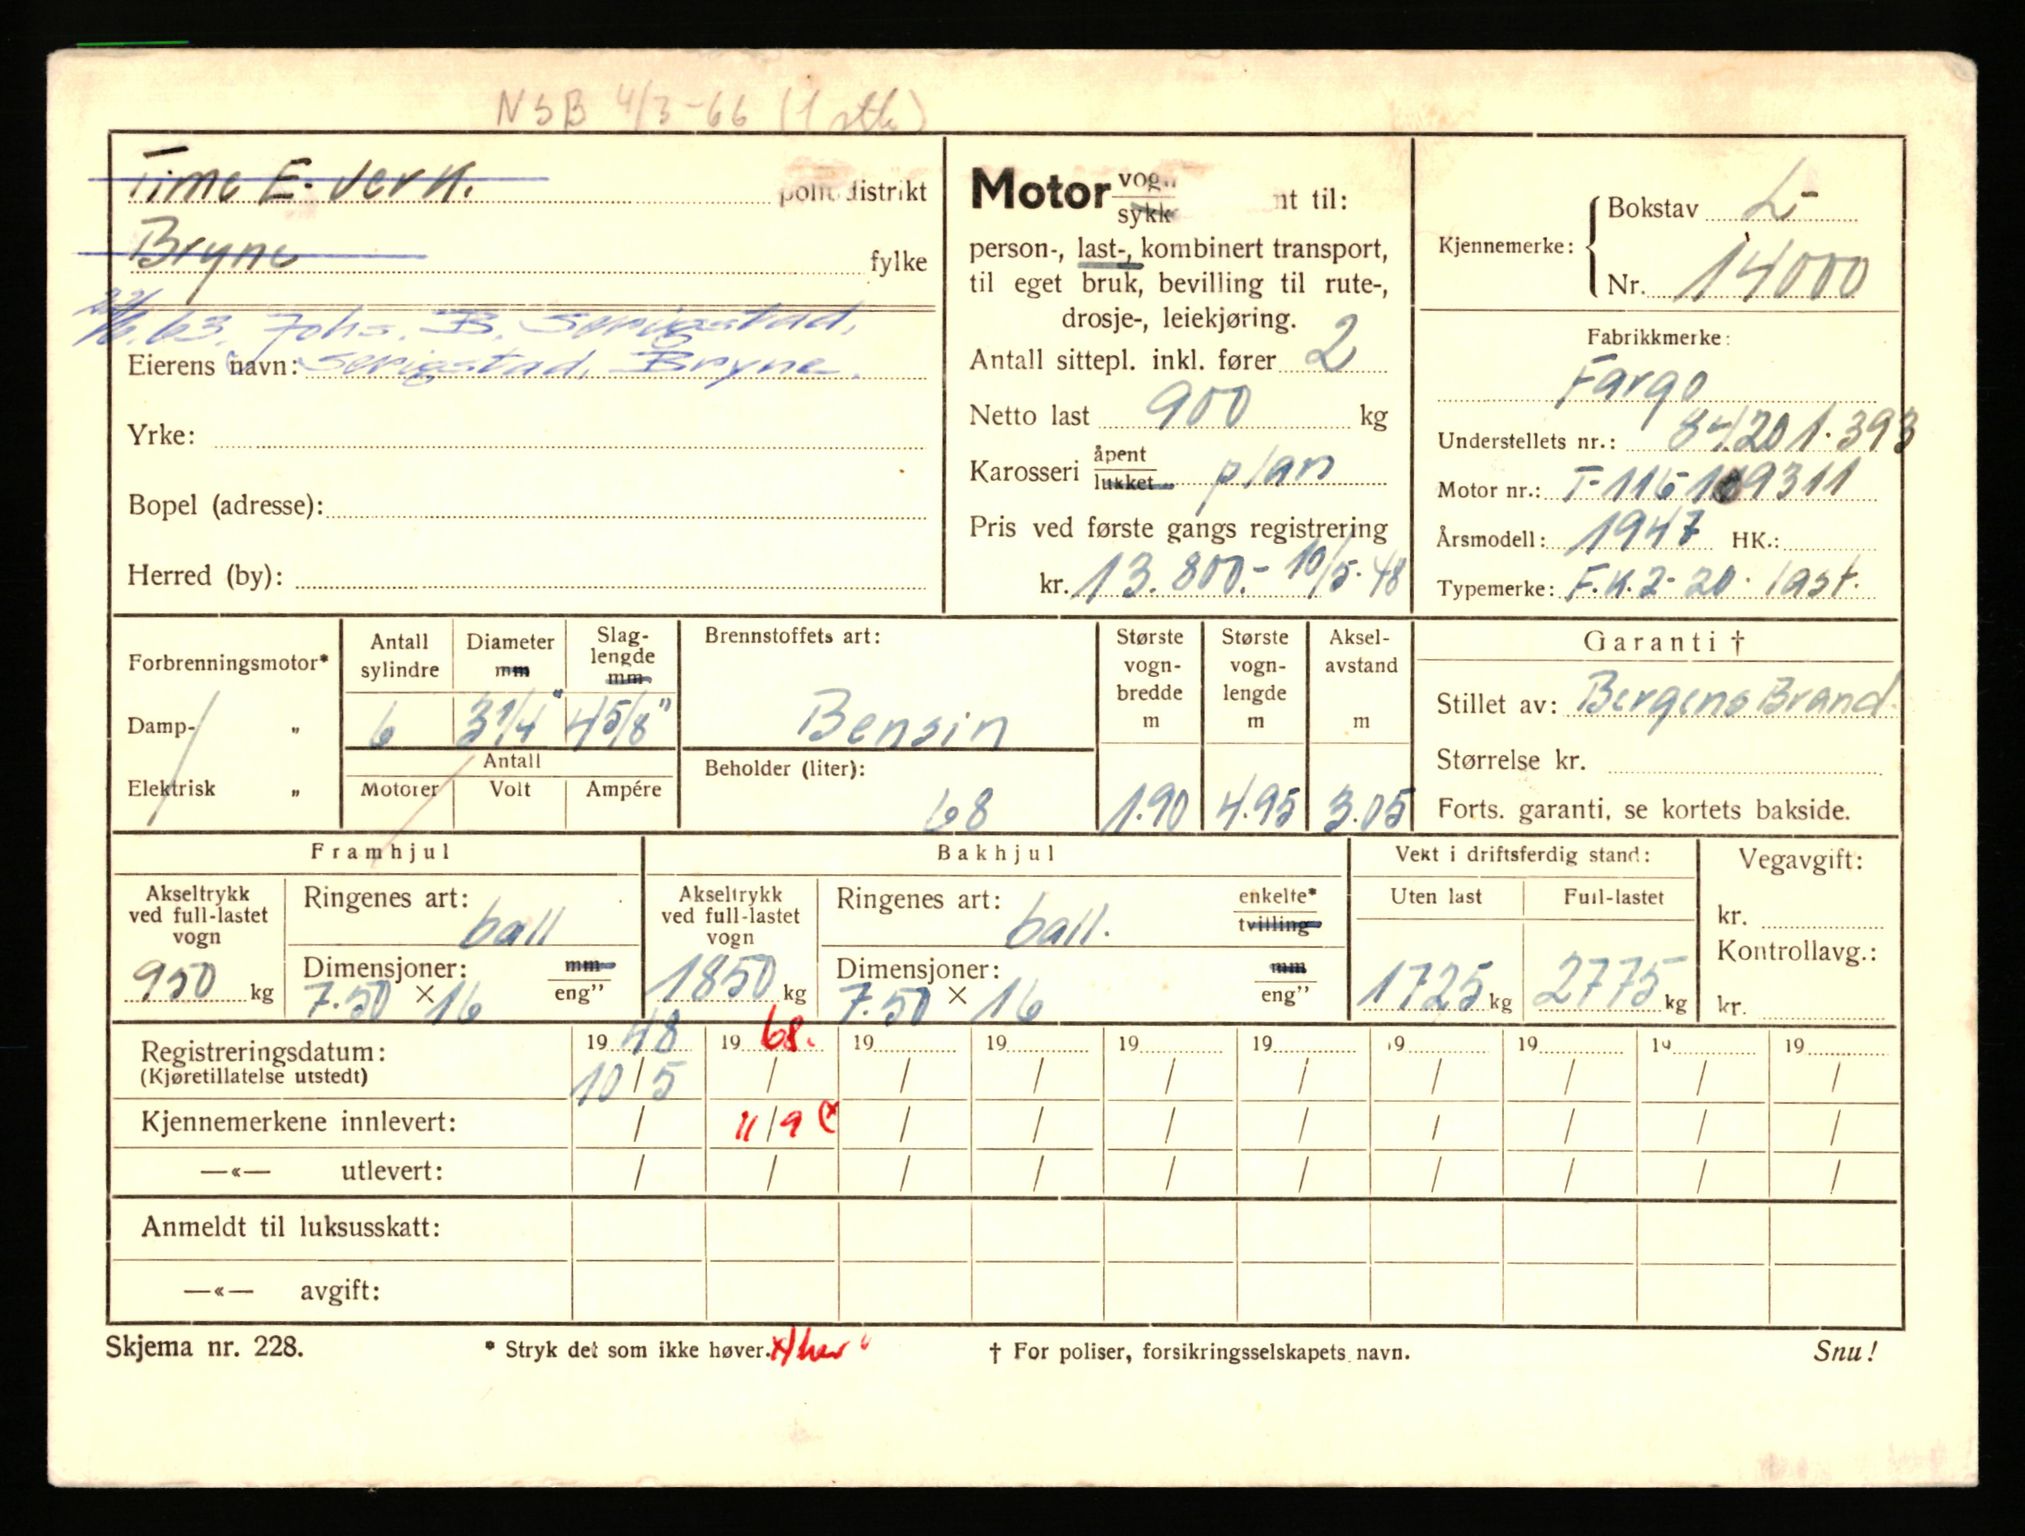 NSB 4/3-66 (1 stk)
Time E. verk. politidistrikt
Bryne fylke
63. Johs. B. Serigstad,
Eierens navn: Serigstad, Bryne.
Yrke:
Bopel (adresse):
Herred (by):
Motor vogn
sykk nt til:
person-, last-, kombinert transport,
til eget bruk, bevilling til rute-,
drosje-, leiekjøring.
Antall sittepl. inkl. fører 2
Netto last 900 kg
Karosseri åpent
lukket plan
Pris ved første gangs registrering
kr. 13.800.- 10/5-48
Kjennemerke: Bokstav L-
Nr. 14000
Fabrikkmerke:
Fargo
Understellets nr.: 84.201.393
Motor nr.: T-116 9311
Årsmodell: 1947 HK.:
Typemerke: F.K.2-20. last.
Forbrenningsmotor*
Damp- „
Elektrisk „
Antall sylindre 6
Diameter mm 3 1/4"
Slag-
lengde
mm 4 5/8"
Antall
Motorer Volt Ampére
Brennstoffets art:
Bensin
Beholder (liter):
68
Største
vogn-
bredde
m
1.90
Største
vogn-
lengde
m
4.95
Aksel-
avstand
m
3.05
Garanti †
Stillet av: Bergens Brand.
Størrelse kr.
Forts. garanti, se kortets bakside.
Framhjul
Akseltrykk
ved full-lastet
vogn
950 kg
Ringenes art:
ball
Dimensjoner: mm
7.50 × 16 eng"
Bakhjul
Akseltrykk
ved full-lastet
vogn
1850 kg
Ringenes art: enkelte*
ball. tvilling
Dimensjoner: mm
7.50 × 16 eng"
Vekt i driftsferdig stand:
Uten last Full-lastet
1725 kg 2775 kg
Vegavgift:
kr.
Kontrollavg.:
kr.
19 48 19 68. 19 19 19 19 19 19 19 19
Registreringsdatum:
(Kjøretillatelse utstedt) 10/5 / / / / / / / / /
Kjennemerkene innlevert: / 11/9 (x / / / / / / / /
—«— utlevert: / / / / / / / / / /
Anmeldt til luksusskatt:
—«— avgift:
Skjema nr. 228. * Stryk det som ikke høver. x) her † For poliser, forsikringsselskapets navn. Snu!